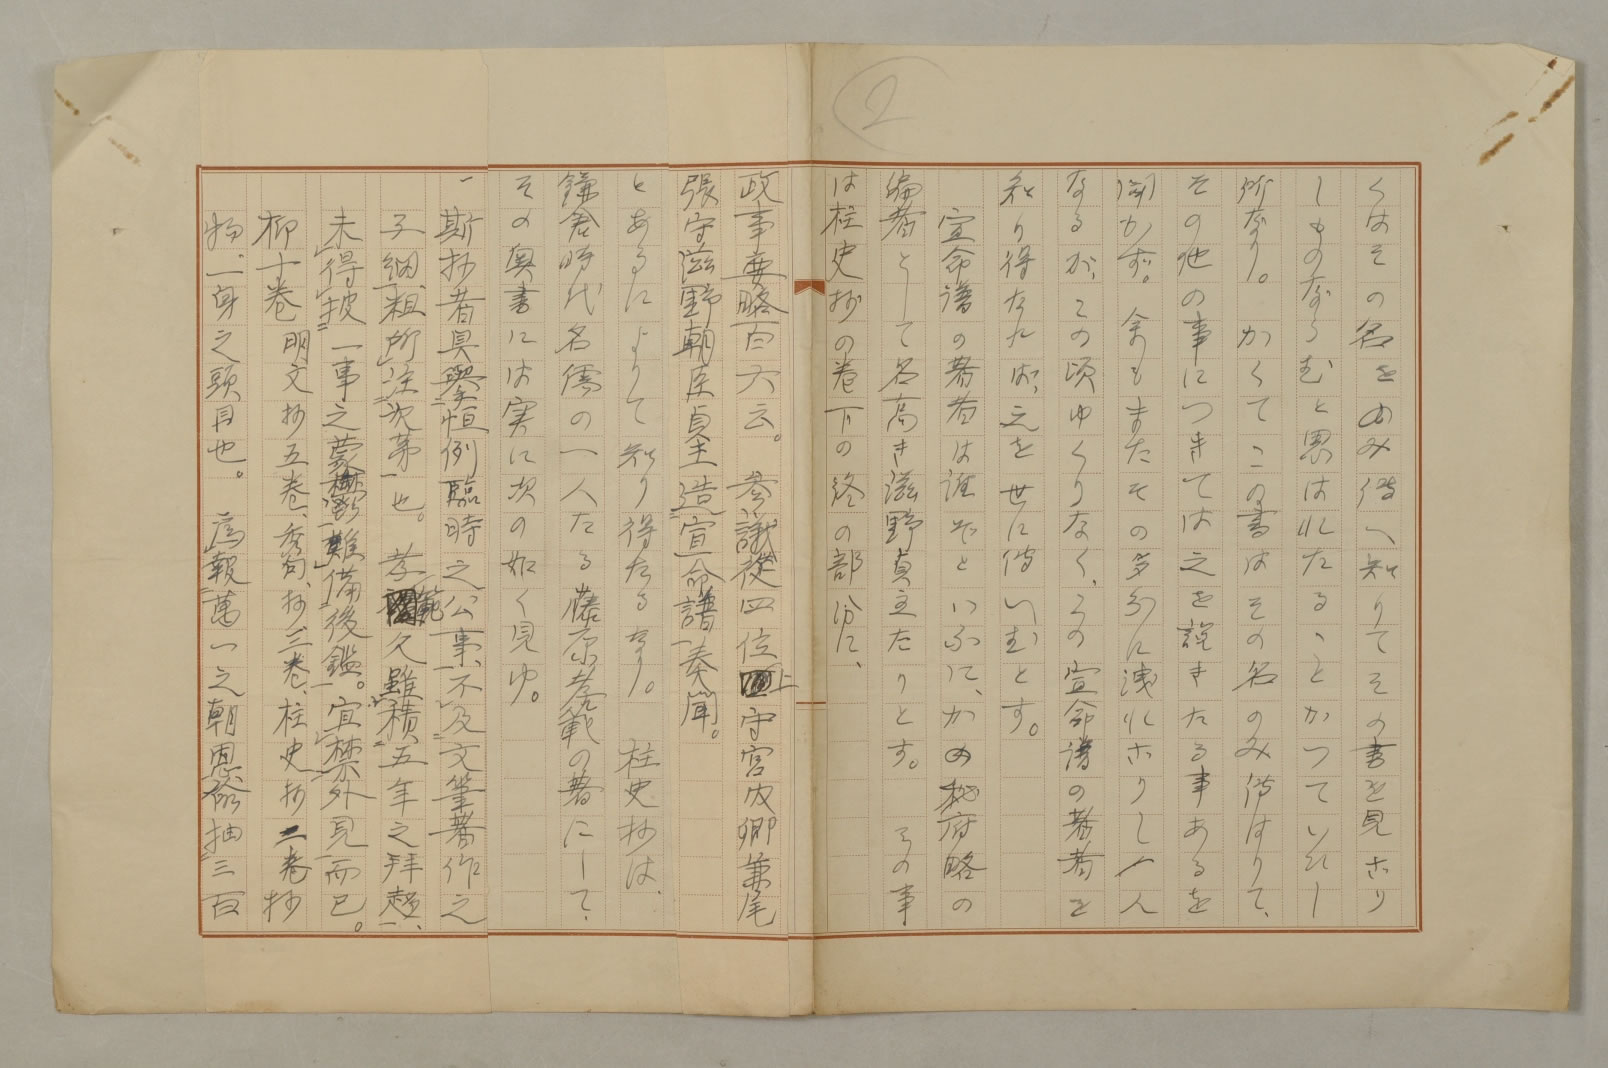 2
くはその名をのみ伝へ知りてその書を見ざり
しものならむと思はれたることかつていひし
所なり。かくてこの書はその名のみ伝はりて、
その他の事につきては之を説きたる事あるを
聞かず。余もまたその多分に洩れざりし一人
なるが、この頃ゆくりなく、この宣命譜の著者を
知り得たれば、之を世に伝いむとす。
宣命譜の著者は誰ぞといふに、かの秘府略の
編者として名高き滋野貞主たりとす。その事
は柱史抄の巻下の終の部分に、
政事要略百六云。参議従四位上守宮内卿兼尾
張守滋野朝臣貞主造宣命譜奏聞。
とあるによりて知り得たるなり。柱史抄は、
鎌倉時代名儒の一人たる藤原孝範の著にして、
その奥書には実に次の如く見ゆ。
一斯抄者具舉恒例臨時之公事、不及文筆著作之
子細、粗所注次第也。孝範久雖積五年之拜趨、
未得披一事之蒙鬱、難備後鑑。宜禁外見而已。
柳十巻 明文抄五巻、秀句抄三巻、柱史抄二巻抄
物、一身之頭目也。為報萬一之朝恩、欲抽三百